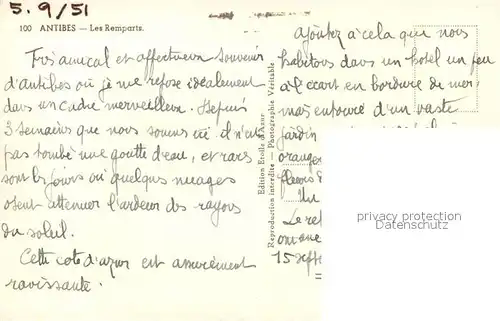 5.9/51
100 ANTIBES – Les Remparts.
Très amical et affectueux souvenir
d'Antibes où je me repose idéalement
dans un cadre merveilleux. Depuis
3 semaines que nous sommes ici il n'est
pas tombé une goutte d'eau, et rares
sont les jours où quelques nuages
osent atténuer l'ardeur des rayons
du soleil.
Cette côte d'azur est assurément
ravissante.
Edition Etoile d'Azur
Reproduction interdite - Photographie Véritable
ajoutez à cela que nous
habitons dans un hôtel un peu
à l'écart en bordure de mer,
mais entouré d'un vaste
jardin
oranger
fleurs d
Un
Le ret
15 sept
privacy protection
Datenschutz